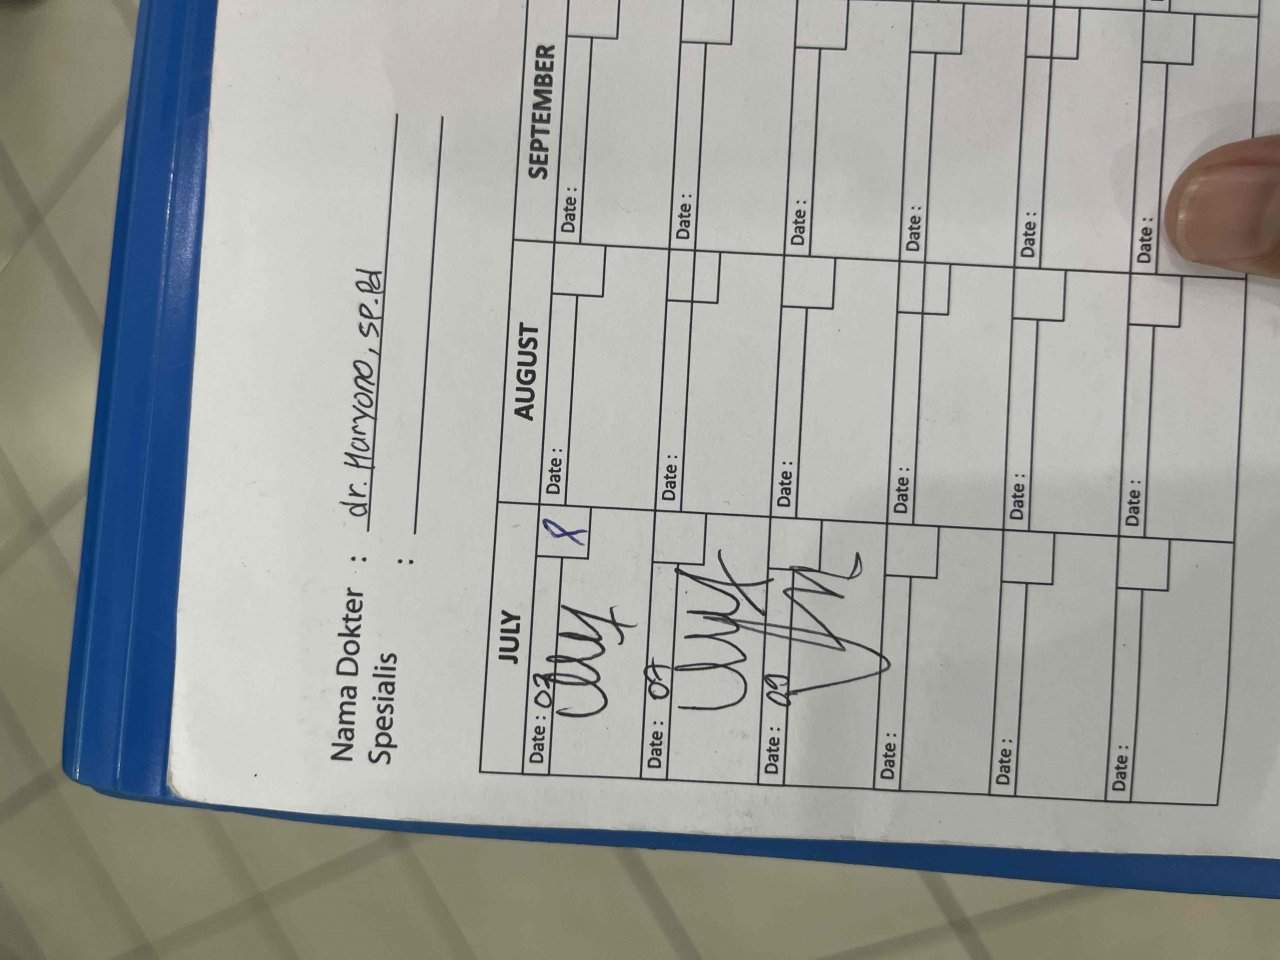 Nama Dokter : dr. Haryono, sp.Pd
Spesialis :
JULY AUGUST SEPTEMBER
Date : 03 Date : Date :
Date : 07 Date : Date :
Date : Date : Date :
Date : Date : Date :
Date : Date : Date :
Date : Date : Date :